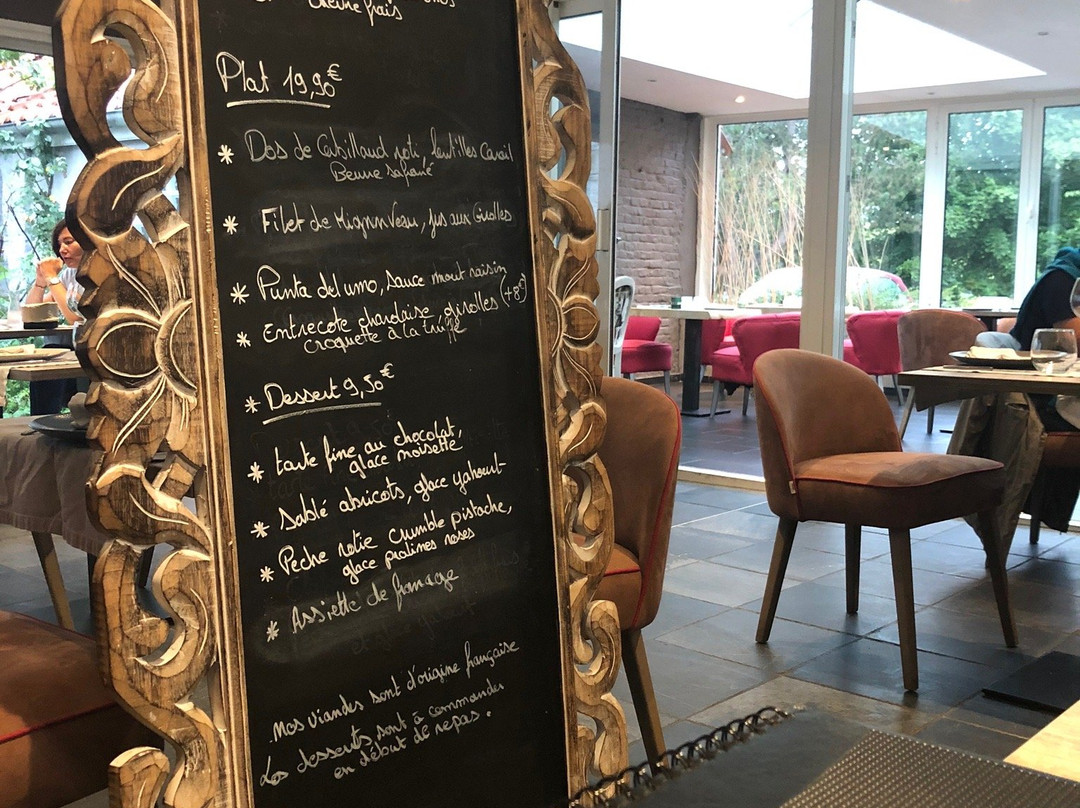 chèvre frais
Plat 19,90€
* Dos de Cabillaud roti, lentilles Corail
Beurre safrané
* Filet de Mignon Veau, jus aux Girolles
* Punta del umo, sauce mout raisin
* Entrecote charolaise, girolles (+8€)
croquette à la truffe
* Dessert 9,50€
* tarte fine au chocolat,
glace noisette
* Sablé abricots, glace yahourt
* Pêche rotie crumble pistache,
glace pralines roses
* Assiette de fromage
Nos viandes sont d'origine française
Les desserts sont à commander
en début de repas.